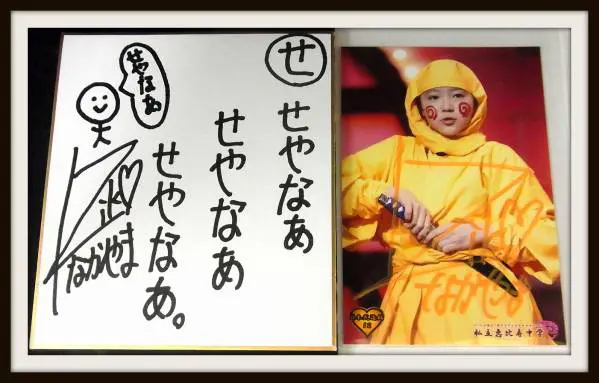 せ
せやなぁ
せやなぁ
せやなぁ
せやなぁ。
なかやま
なかやま
私立恵比寿中学